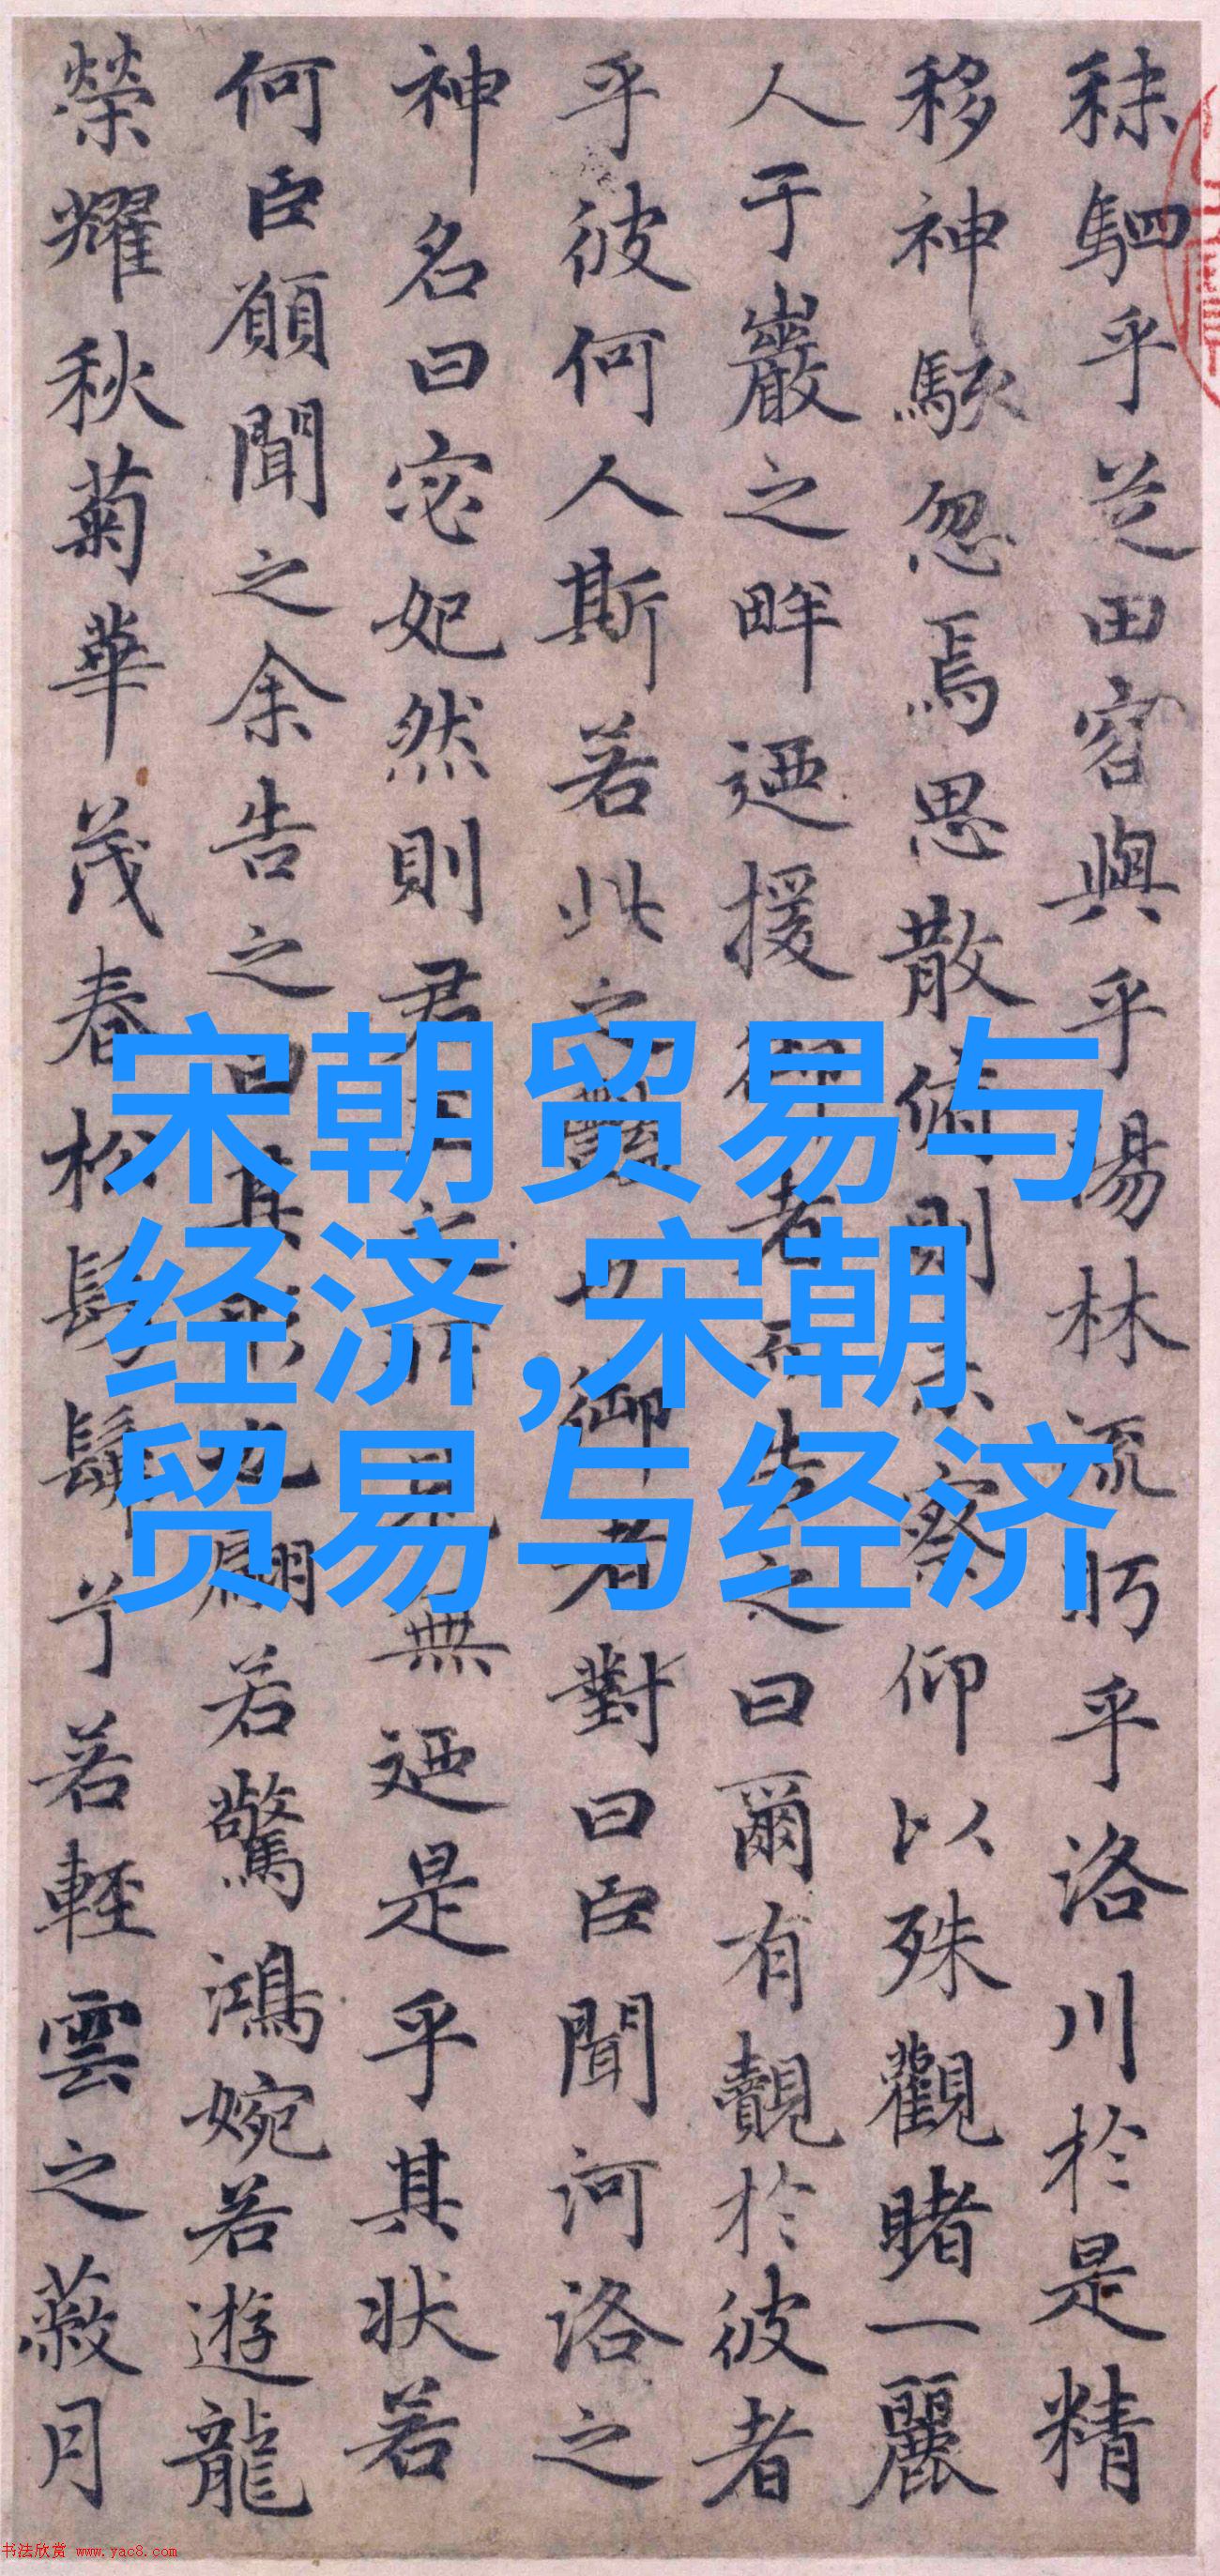 秣駟乎芝田容與乎陽林流眄乎洛川於是精
移神駭忽焉思散俯則未察仰以殊觀睹一麗
人于巖之畔迺援御者而告之曰爾有覿於彼者
乎彼何人斯若此之豔也御者對曰臣聞河洛之
神名曰宓妃然則君王之所見無迺是乎其狀若
何臣願聞之余告之曰其形也翩若驚鴻婉若遊龍
榮耀秋菊華茂春松髣髴兮若輕雲之蔽月
宋朝贸易与
经济,宋朝
贸易与经济
书法欣赏 www.yac8.com